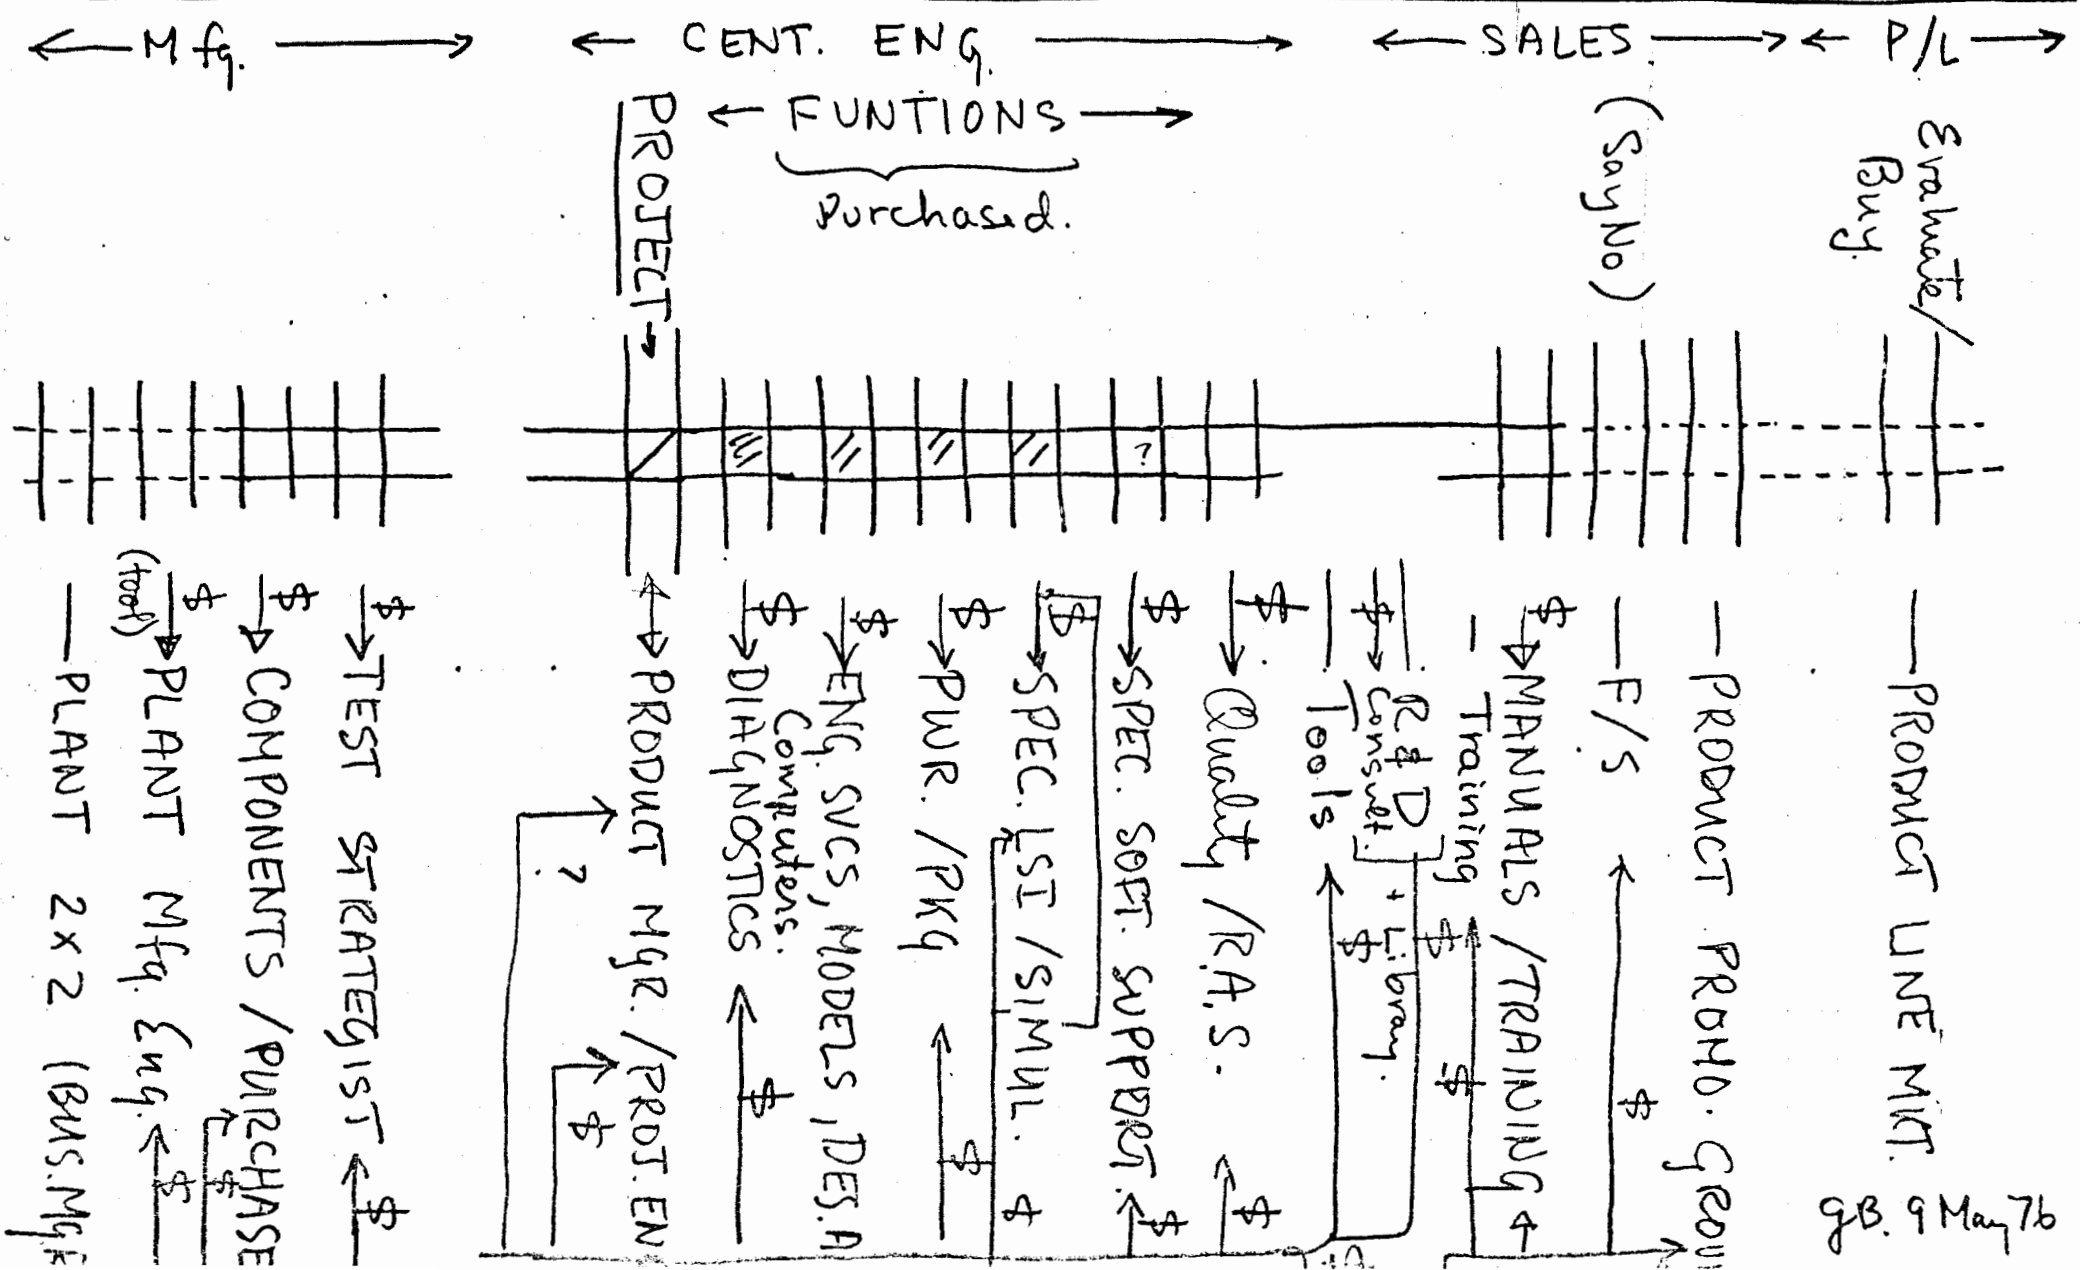 ← Mfg. →
← CENT. ENG. →
← SALES. →
← P/L →
PROJECT →
← FUNTIONS →
Purchased.
(Say No)
Evaluate/
Buy.
?
— PLANT 2x2 (BUS. MgR
(tool)
$
PLANT Mfg. Eng.
$
$
COMPONENTS / PURCHASE
$
$
TEST STRATEGIST
$
?
PRODUCT MGR. / PROJ. EN
$
$
DIAGNOSTICS
$
$
ENG. SVCS, MODELS, DES. A
Computers.
$
PWR. / PKG
$
$
SPEC. LSI / SIMUL.
$
$
SPEC. SOFT. SUPPORT.
$
$
Quality / R.A.S.
$
Tools
$
R & D
Consult.
+ Library.
$
$
— Training
$
$
MANUALS / TRAINING
— F/S
$
— PRODUCT PROMO. GROU
— PRODUCT LINE MKT.
GB. 9 May 76